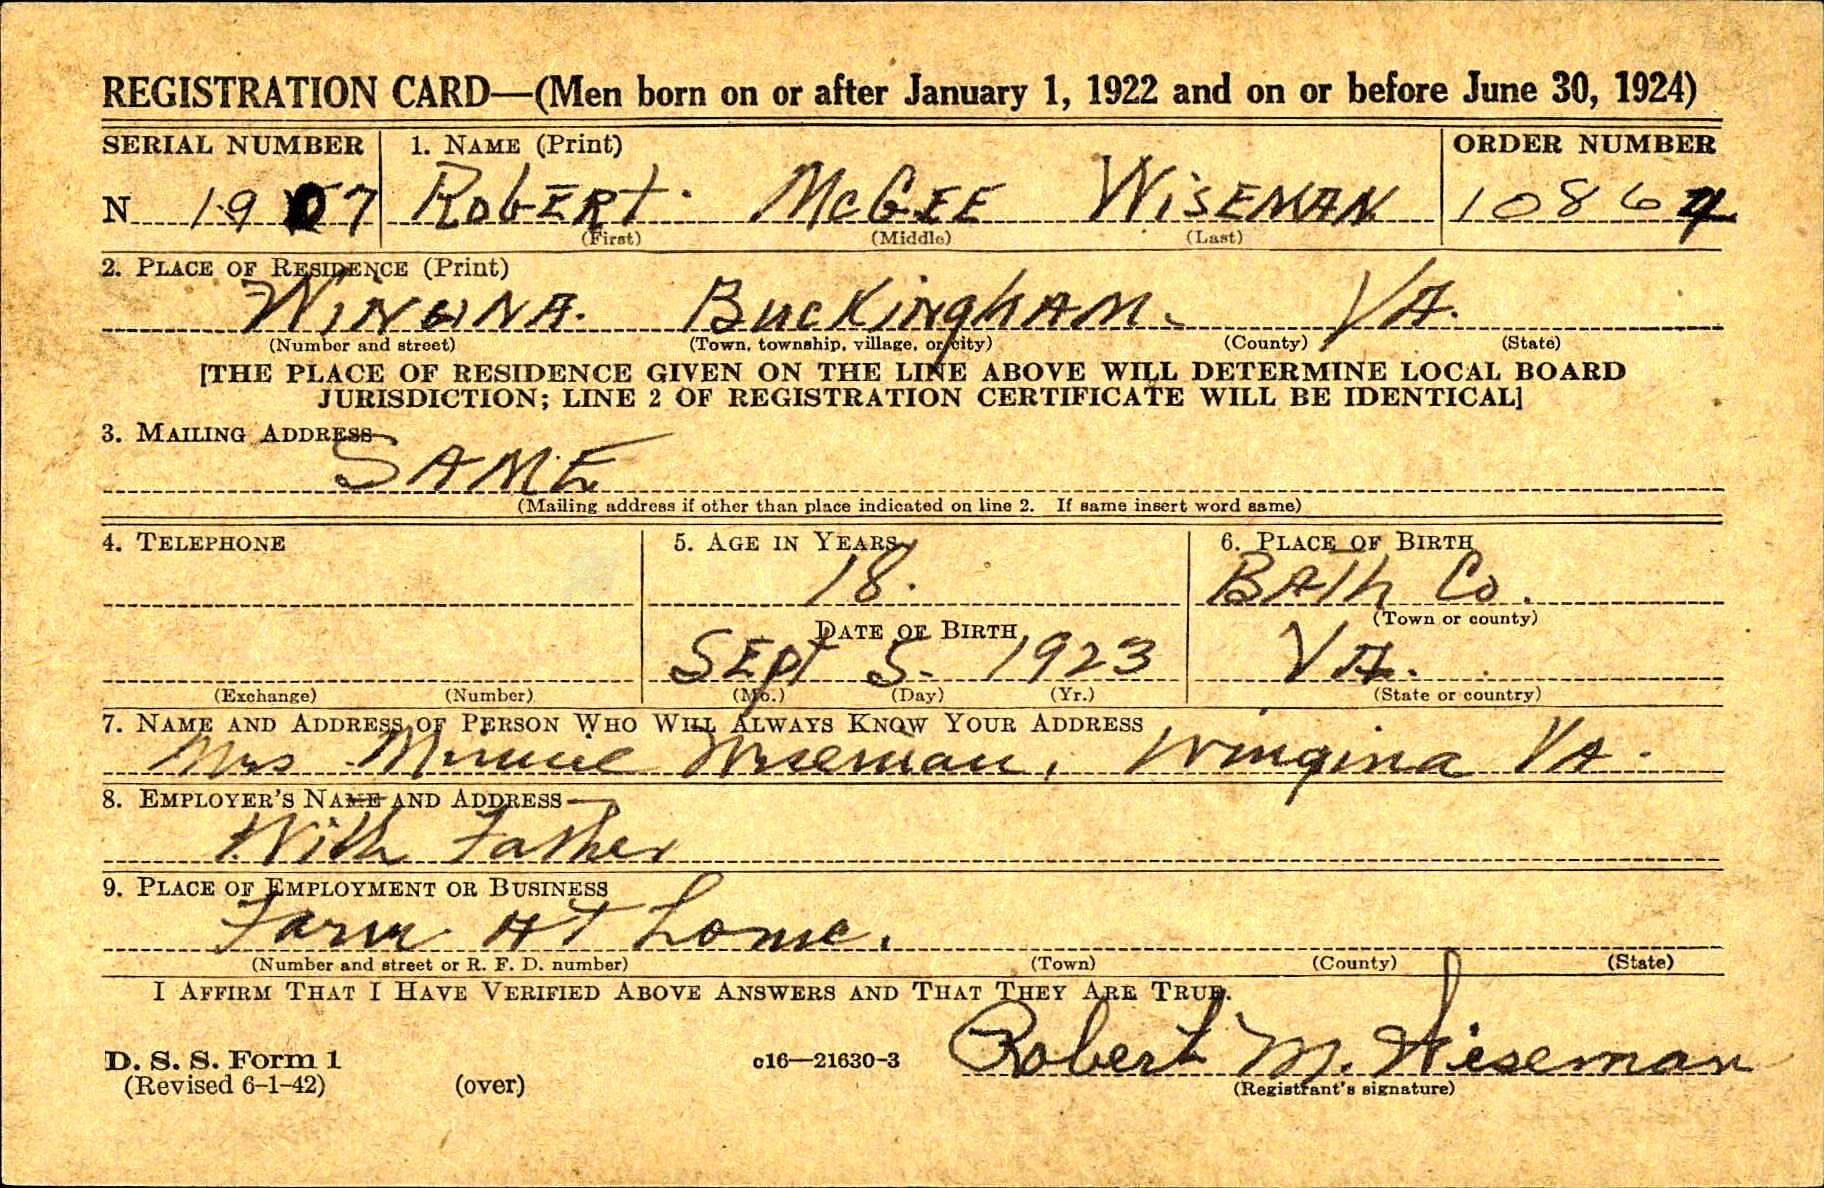 REGISTRATION CARD—(Men born on or after January 1, 1922 and on or before June 30, 1924)
SERIAL NUMBER 1. NAME (Print) ORDER NUMBER
N 1907 ROBERT McGEE WISEMAN 10864
(First) (Middle) (Last)
2. PLACE OF RESIDENCE (Print)
WINGINA. BUCKINGHAM. VA.
(Number and street) (Town, township, village, or city) (County) (State)
[THE PLACE OF RESIDENCE GIVEN ON THE LINE ABOVE WILL DETERMINE LOCAL BOARD
JURISDICTION; LINE 2 OF REGISTRATION CERTIFICATE WILL BE IDENTICAL]
3. MAILING ADDRESS
SAME
(Mailing address if other than place indicated on line 2. If same insert word same)
4. TELEPHONE 5. AGE IN YEARS 6. PLACE OF BIRTH
18. BATH Co.
(Town or county)
DATE OF BIRTH
SEpt 5. 1923 VA.
(Exchange) (Number) (Mo.) (Day) (Yr.) (State or country)
7. NAME AND ADDRESS OF PERSON WHO WILL ALWAYS KNOW YOUR ADDRESS
Mrs Minnie Wiseman, Wingina VA.
8. EMPLOYER'S NAME AND ADDRESS
With Father
9. PLACE OF EMPLOYMENT OR BUSINESS
Farm At home.
(Number and street or R. F. D. number) (Town) (County) (State)
I AFFIRM THAT I HAVE VERIFIED ABOVE ANSWERS AND THAT THEY ARE TRUE.
Robert M. Wiseman
D. S. S. Form 1 c16—21630-3
(Revised 6-1-42) (over) (Registrant's signature)